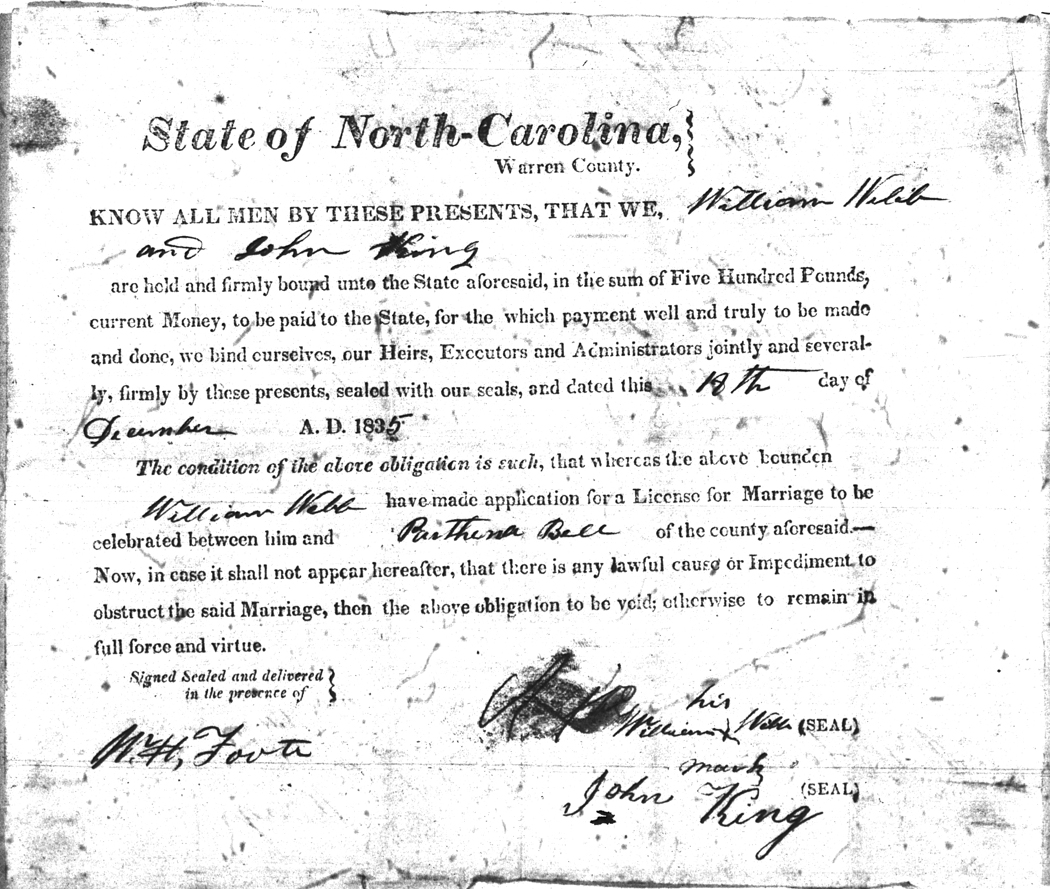 State of North-Carolina,
Warren County.
KNOW ALL MEN BY THESE PRESENTS, THAT WE, William Webb
and John King
are held and firmly bound unto the State aforesaid, in the sum of Five Hundred Pounds,
current Money, to be paid to the State, for the which payment well and truly to be made
and done, we bind ourselves, our Heirs, Executors and Administrators jointly and several-
ly, firmly by these presents, sealed with our seals, and dated this 18th day of
December A. D. 1835
The condition of the above obligation is such, that whereas the above bounden
William Webb have made application for a License for Marriage to be
celebrated between him and Parthena Bell of the county aforesaid.—
Now, in case it shall not appear hereafter, that there is any lawful cause or Impediment to
obstruct the said Marriage, then the above obligation to be void; otherwise to remain in
full force and virtue.
Signed Sealed and delivered
in the presence of
his
William X Webb (SEAL)
mark
Wm. H, Foote
John King (SEAL)